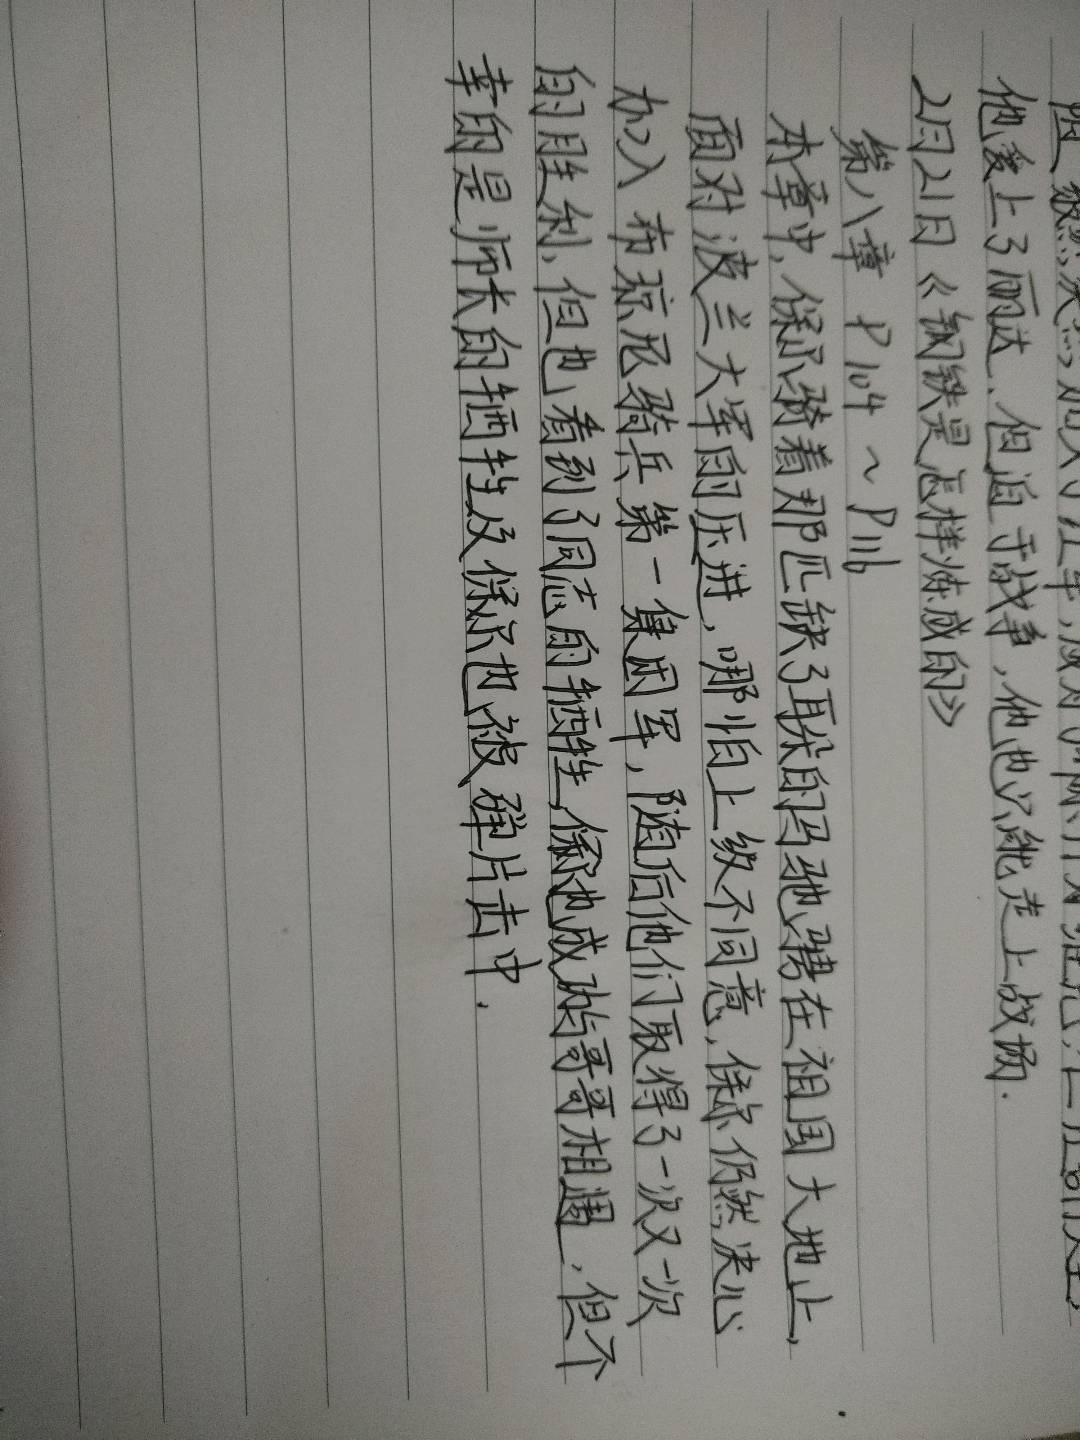 他爱上了丽达，但迫于战争，他也只能走上战场．
2月21日《钢铁是怎样炼成的》
第八章 P104～P116
本章中，保尔骑着那匹缺了耳朵的马驰骋在祖国大地上，
面对波兰大军的压进，哪怕上级不同意，保尔仍然决心
加入布琼尼骑兵第一集团军，随后他们取得了一次又一次
的胜利，但也看到了同志的牺牲，保尔也成功与哥哥相遇，但不
幸的是师长的牺牲及保尔也被弹片击中．